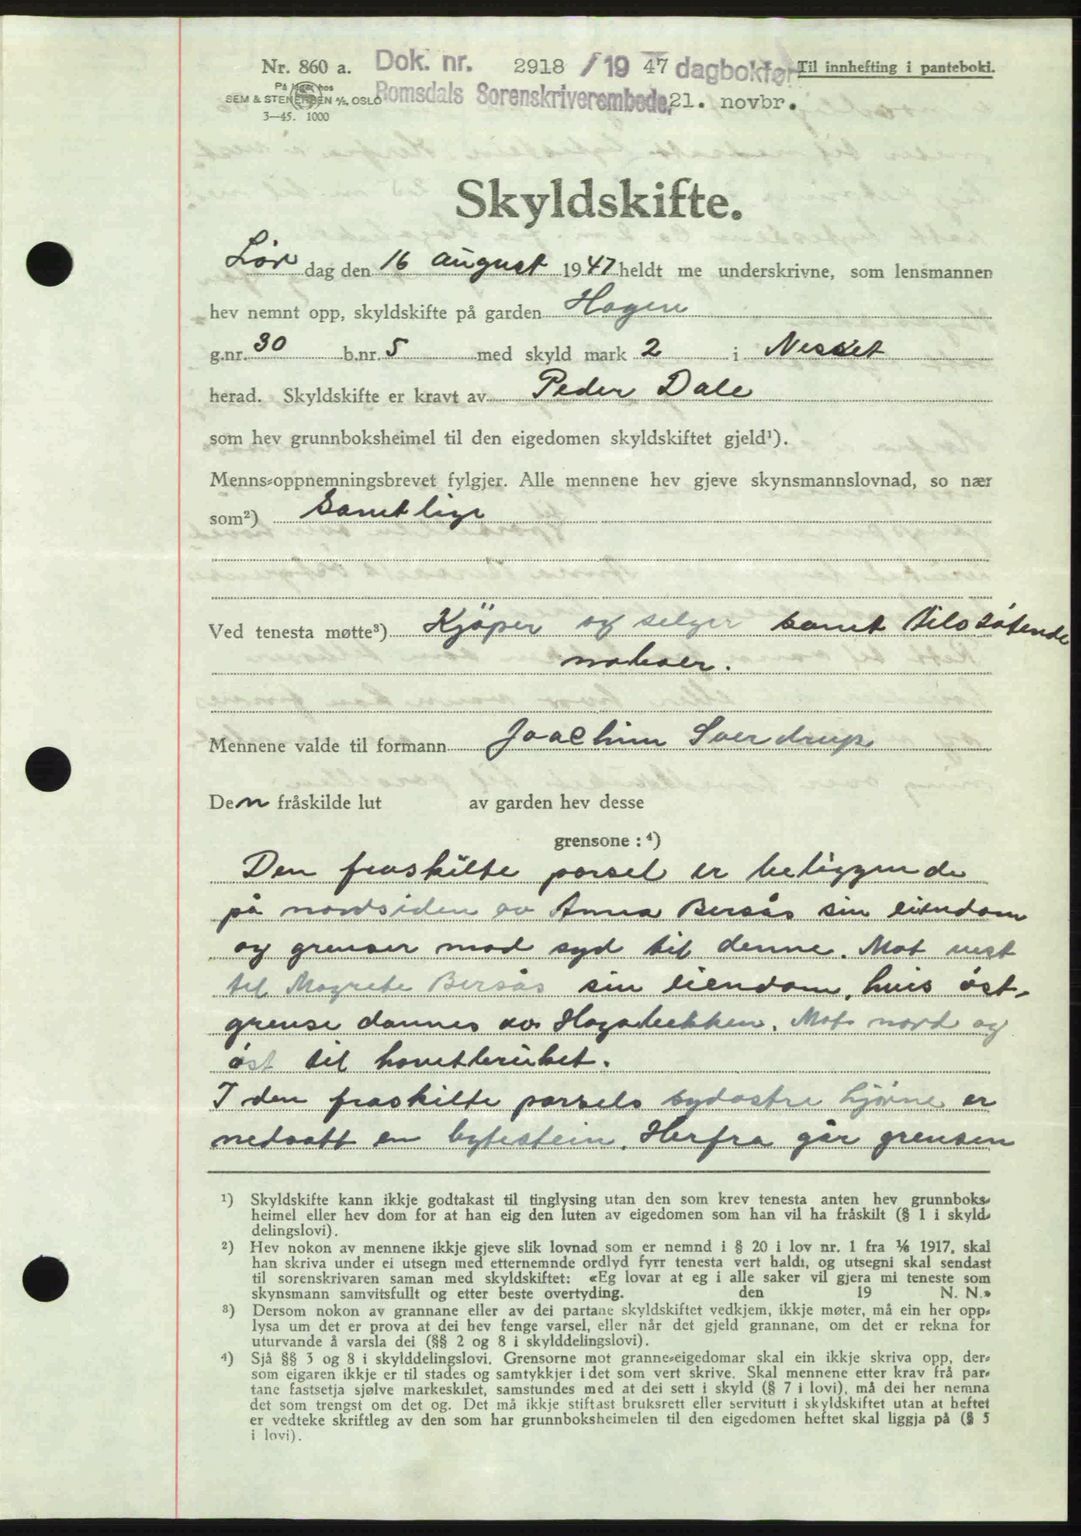 Nr. 860 a. Dok. nr. 2918 / 19 47 dagbokført Til innhefting i panteboki.
På lager hos
SEM & STENERSEN A/S, OSLO Romsdals Sorenskriverembede, 21. novbr.
3—45. 1000
Skyldskifte.
Lør dag den 16 august 1947 heldt me underskrivne, som lensmannen
hev nemnt opp, skyldskifte på garden Hagen
g.nr. 30 b.nr. 5 med skyld mark 2 i Nesset
herad. Skyldskifte er kravt av Peder Dale
som hev grunnboksheimel til den eigedomen skyldskiftet gjeld¹).
Menns-oppnemningsbrevet fylgjer. Alle mennene hev gjeve skynsmannslovnad, so nær
som²) Samtlige
Ved tenesta møtte³) Kjöper og selger samt tilstötende
naboer.
Mennene valde til formann Joachim Sverdrup
Den fråskilde lut av garden hev desse
grensone :⁴)
Den fraskilte parsel er beliggende
på nordsiden av Anna Bersås sin eiendom
og grenser mod syd til denne. Mot vest
til Magrete Bersås sin eiendom, hvis öst-
grense dannes av Hagabekken. Mot nord og
øst til hovetbruket.
I den fraskilte parsels sydøstre hjørne er
nedsatt en bytestein. Herfra går grensen
¹) Skyldskifte kann ikkje godtakast til tinglysing utan den som krev tenesta anten hev grunnboks-
heimel eller hev dom for at han eig den luten av eigedomen som han vil ha fråskilt (§ 1 i skyld-
delingslovi).
²) Hev nokon av mennene ikkje gjeve slik lovnad som er nemnd i § 20 i lov nr. 1 fra ⅙ 1917, skal
han skriva under ei utsegn med etternemnde ordlyd fyrr tenesta vert haldi, og utsegni skal sendast
til sorenskrivaren saman med skyldskiftet: «Eg lovar at eg i alle saker vil gjera mi teneste som
skynsmann samvitsfullt og etter beste overtyding. den 19 N. N.»
³) Dersom nokon av grannane eller av dei partane skyldskiftet vedkjem, ikkje møter, må ein her opp-
lysa um det er prova at dei hev fenge varsel, eller når det gjeld grannane, om det er rekna for
uturvande å varsla dei (§§ 2 og 8 i skylddelingslovi).
⁴) Sjå §§ 3 og 8 i skylddelingslovi. Grensorne mot granne-eigedomar skal ein ikkje skriva opp, der-
som eigaren ikkje er til stades og samtykkjer i det som vert skrive. Skal mennene etter krav frå par-
tane fastsetja sjølve markeskilet, samstundes med at dei sett i skyld (§ 7 i lovi), må dei her nemna
det som trengst om det og. Det må ikkje stiftast bruksrett eller servitutt i skyldskiftet utan at heftet
er vedteke skriftleg av den som har grunnboksheimelen til den eigedomen heftet skal liggja på (§ 5
i lovi).